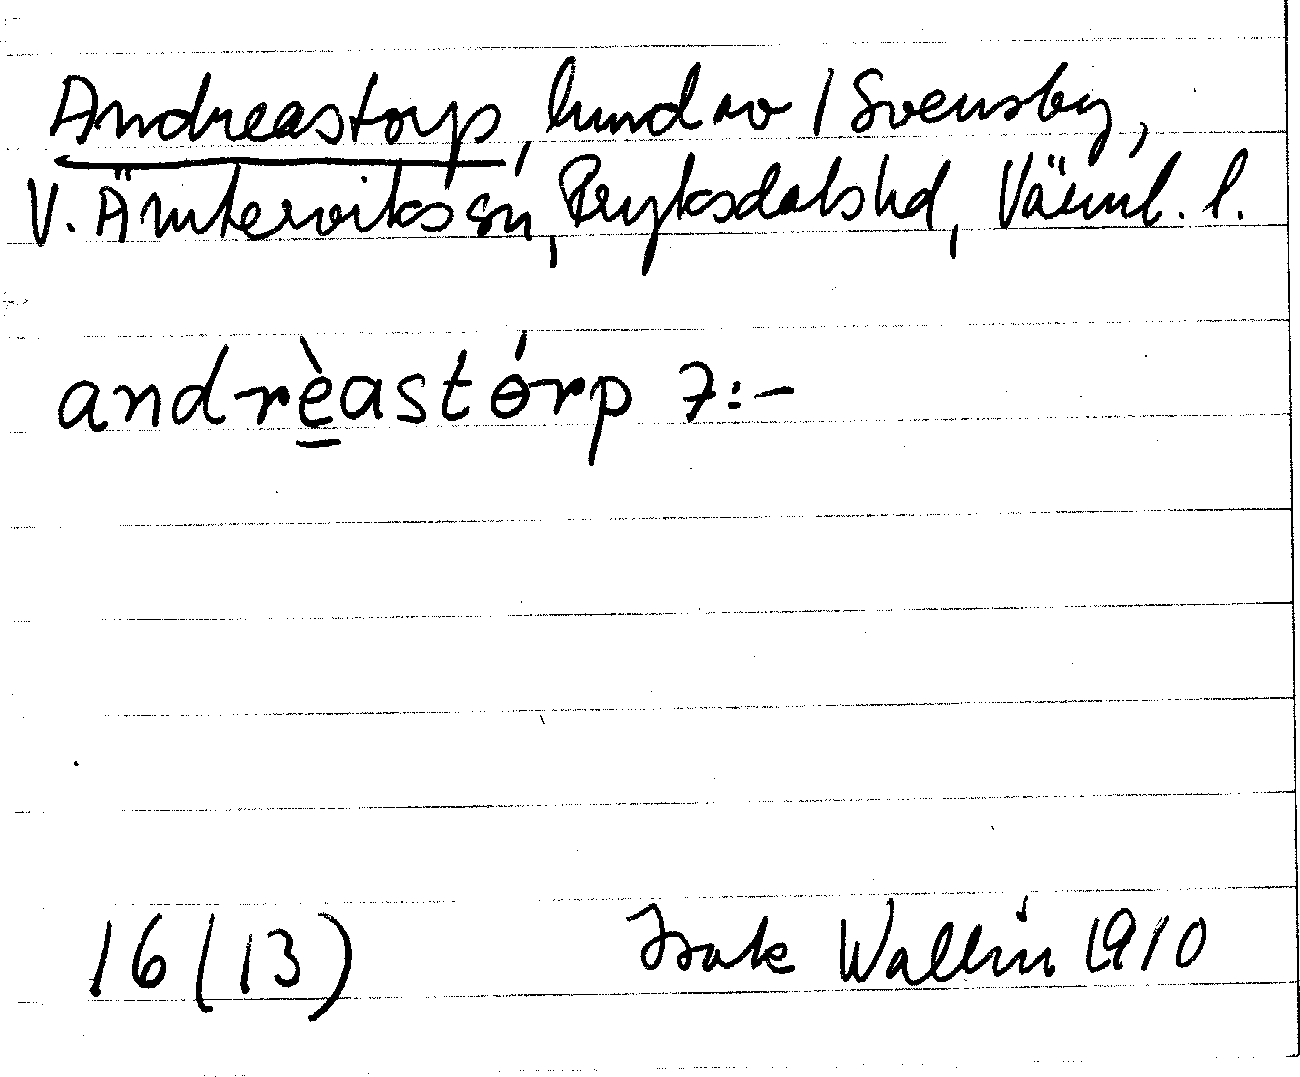 Andreastorp, lund av / Svensby,
V. Ämterviks sn, Fryksdals hd, Värml. l.
andrèastɵ́rp 7:-
16 (13) Isak Wallin 1910